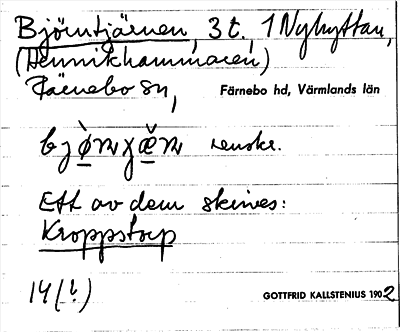 Björntjärnen, 3 t., 1 Nyhyttan,
(Hennikhammaren,)
Färnebo sn, Färnebo hd, Värmlands län
Ett av dem skrives:
Kroppstorp
14 (b)
GOTTFRID KALLSTENIUS 1902